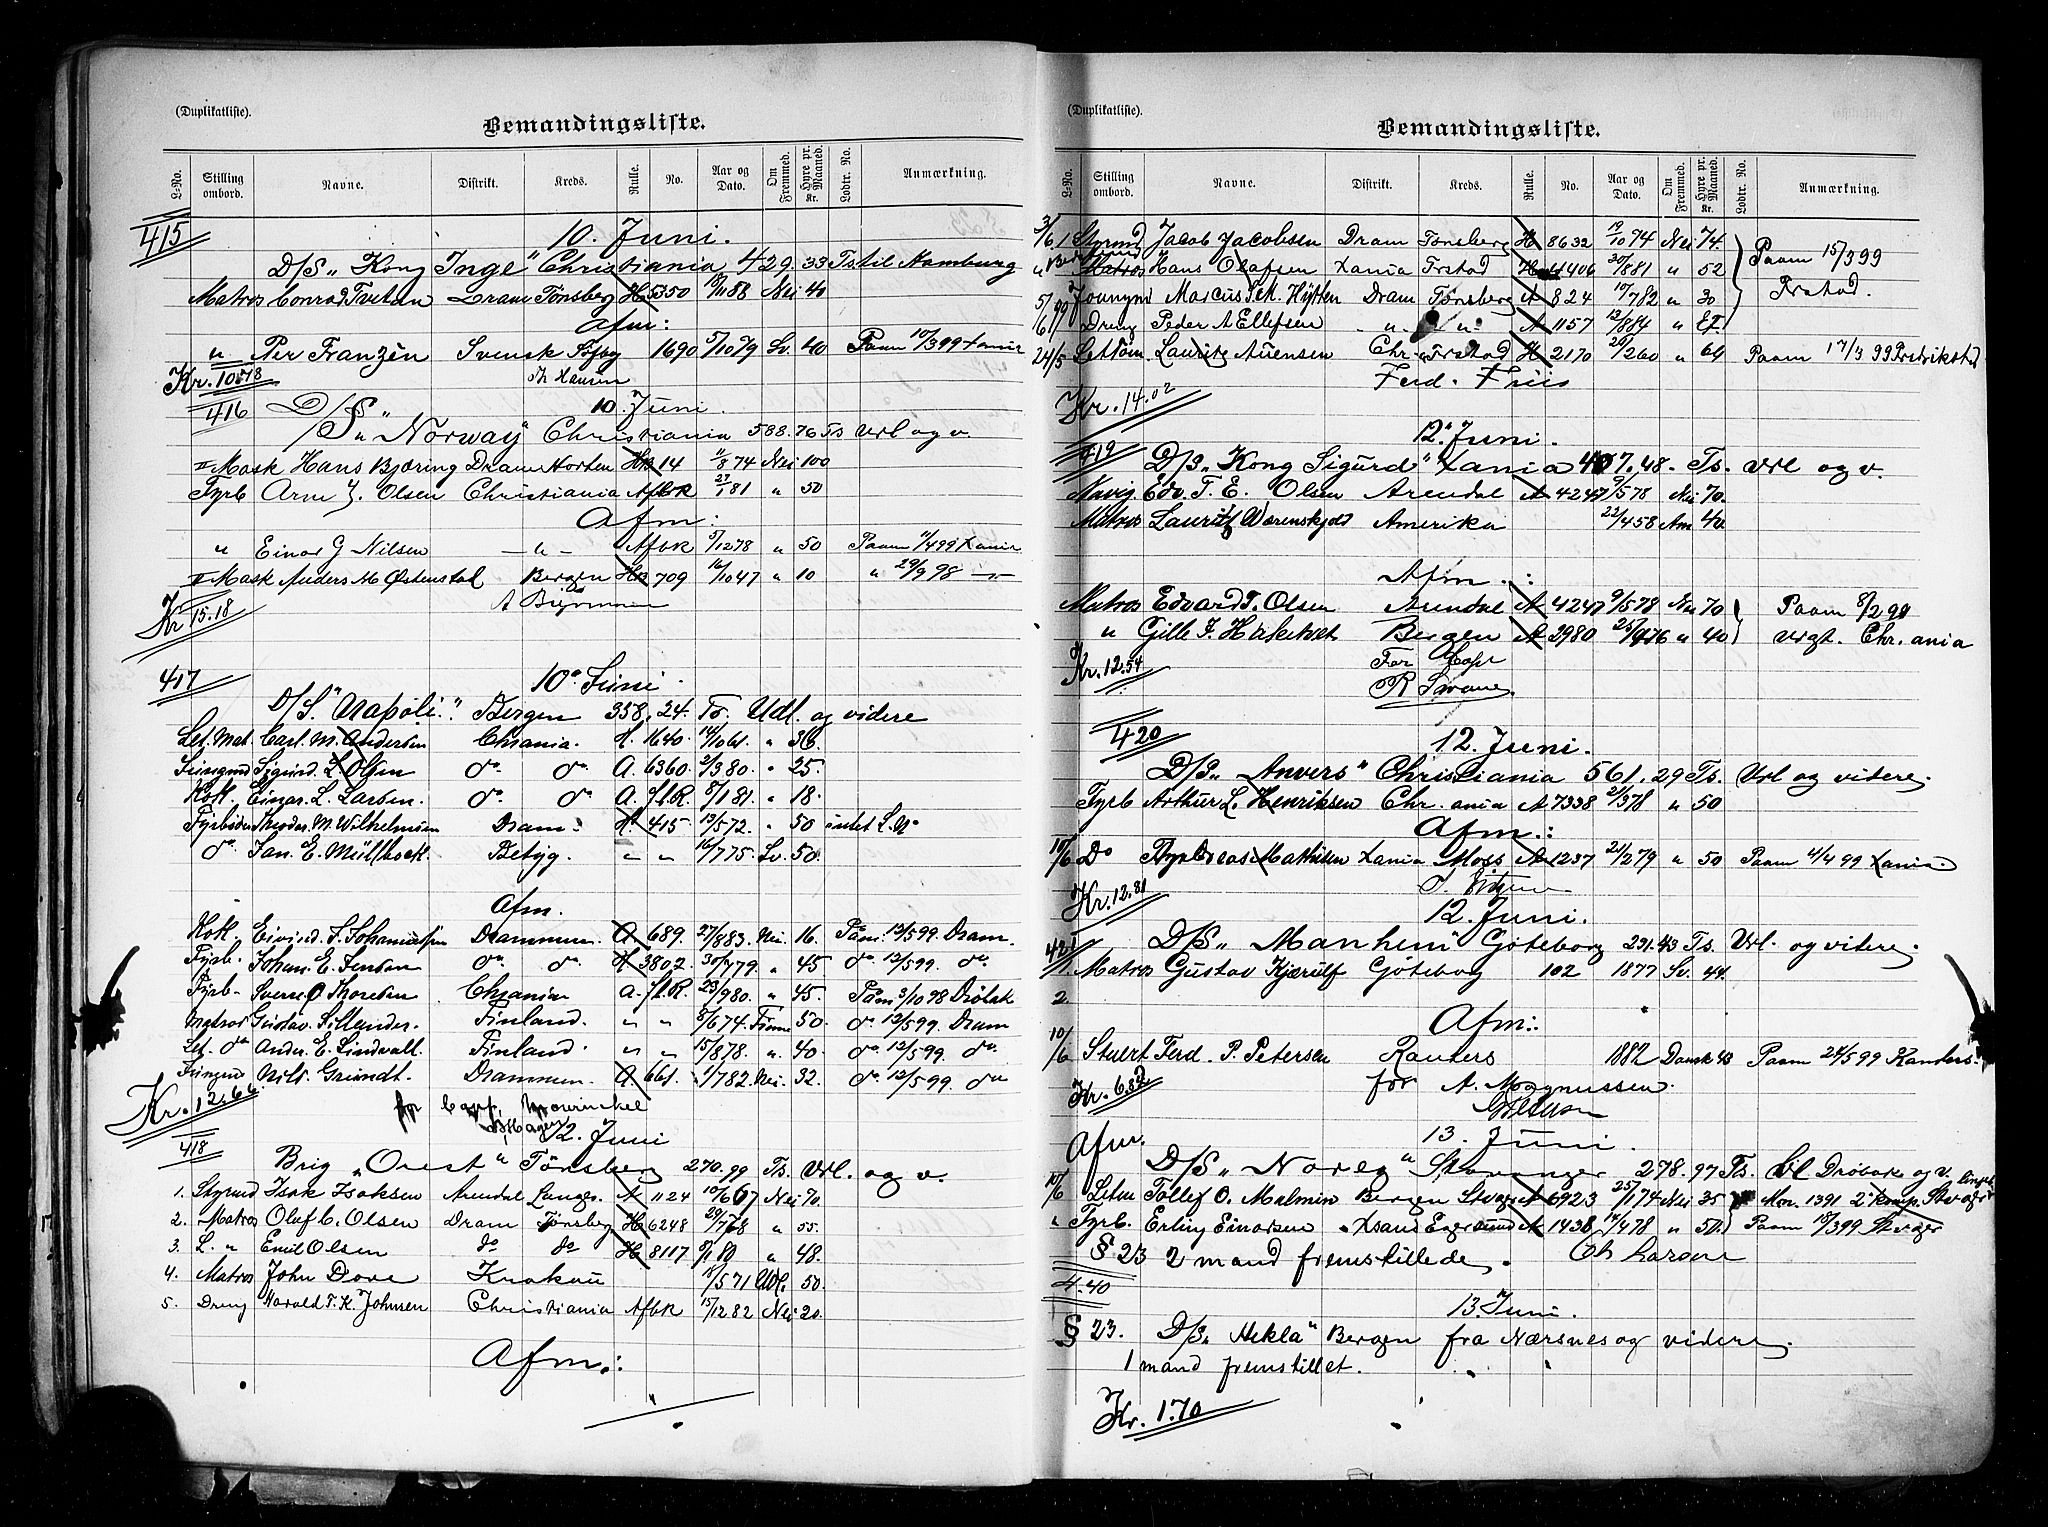 (Duplikatliste).
Bemandingsliste.
L-No. Stilling ombord. Navne. Distrikt. Kreds. Rulle. No. Aar og Dato. Om Fremmed. Hyre pr. Maaned. Kr. Lodtr. No. Anmærkning.
415
10. Juni.
D/S „Kong Inge" Christiania 429.33 Ts til Hamburg
Matros Conrad Tvetan Dram Tønsberg H 5350 Nei 40
Afm:
" Per Franzèn Svensk 1690 5/10 79 Sv. 40 Paam 10/3 99 Xania
Kr. 10.78
Th Hansen
416
10. Juni.
D/S „Norway" Christiania 588.76 Ts Url og v.
II Mask Hans Bjæring Dram Horten 14 11/8 74 Nei 100
Fyrb Arne J. Olsen Christiania Afbk 27/1 81 " 50
Afm:
" Einar G Nilsen — " — Afbk 5/12 78 " 50 Paam 11/4 99 Xania
II Mask Anders M Østenstad Bergen 709 16/10 47 " 10 " 29/9 98 — " —
Kr 15.18
417
10 Juni.
D/S. "Napoli." Bergen 358.24. Ts. Udl. og videre
Let. Mat. Carl. M. Andersen Chrania. H. 1640. 14/10 61. " 36.
Jungmd Sigurd. L. Olsen do. do. A. 6360. 2/3 80. " 25.
Kok. Einar. L. Larsen. do. do. A. fl.R. 8/1 81. " 18.
Fyrbøder Theodor. M. Wilhelmsen Dram. H 415. 13/5 72. " 50
do. Jan. E. Müllbock. Betyg. " " 16/7 75. Sv. 50.
Afm.
Kok. Eivind. S. Johannesen Drammen. A. 689. 27/8 83. Nei. 16. Påm. 12/5 99. Dram.
Fyrb. Johan. E. Jensen do. do. H 3802. 30/7 79. " 45 do. 12/5 99. do.
Fyrb- Sverre O Thoresen Chrania A. fl.R. 23/9 80. " 45. Påm 3/10 98 Drøbak
Matros Gustav. Sillander. Finland. " " 8/6 74. Finne 50. do. 12/5 99. Dram
Let. do Ander. E. Lindvall. Finland. " " 15/8 78. ". 40. do. 12/5 99. do.
Jungmd Nils. Grundt. Drammen. A. 661. 1/7 82. Nei. 32. do. 12/5 99. do
Kr. 12.66
418
12. Juni
Brig „Orest" Tønsberg 270.99 Ts. Url. og v.
1. Styrmd Isak Isaksen Arendal Langes. A 1124 10/6 67 Nei 70.
2. Matros Olaf C. Olsen Dram Tønsberg H 6248 29/7 78 " 55.
3. L. " Emil Olsen do do H 8117 " 48.
4. Matros John Dove Krakau 18/5 71 Udl. 50.
5. Dreng Harald F. K. Johnsen Christiania Afbk 15/12 82 Nei 20.
Afm.:
(Duplikatliste).
Bemandingsliste.
L-No. Stilling ombord. Navne. Distrikt. Kreds. Rulle. No. Aar og Dato. Om Fremmed. Hyre pr. Maaned. Kr. Lodtr. No. Anmærkning.
3/6. 1 Styrmd Jacob Jacobsen Dram Tønsberg H 8632 19/10 74 Nei 74.
" Matros Hans Olafsen Xania Frstad H 4406 30/8 81 " 52
Paam 15/3 99 Frstad.
5/6 99 Joungm Marcus Hytten Dram Tønsberg A 824 10/7 82 " 30
1/6 Dreng Peder A Ellefsen - " - " - A 1157 13/8 84 "
24/5 Lettm. Lauritz Auensen Chr. Frstad H 2170 26/2 60 " 64 Paam 17/3 99 Fredrikstad
Ferd. Friis
Kr. 14.02
419
12. Juni.
D/S „Kong Sigurd" Xania 407.48. Ts. Url og v.
Navig Edv. T. E. Olsen Arendal A 4247 9/5 78 Nei 70.
Matros Lauritz Wærenskjold Amerika 22/4 58 Am 40.
Afm.:
Matros Edvard T. Olsen Arendal A 4247 9/5 78 Nei 70
Paam 8/2 99
" Gille F. Hakestad Bergen A 2980 " 40
Urgt. Chr.ania
Kr. 12.54
For Capt
420
12. Juni.
D/S „Anvers" Christiania 561.29 Ts. Url og videre.
Fyrb Arthur L. Henriksen Chr.ania A 7338 21/3 78 " 50
Afm.:
10/6 Do Mathisen Xania Moss A 1237 21/2 79 " 50 Paam 4/4 99 Xania.
Kr. 12.81
12. Juni.
421
D/S „Manhem" Göteborg 231.43 Ts. Url. og videre.
1. Matros Gustav Kjærulf Göteborg 102 1877 Sv. 44.
2.
Afm.:
10/6 Stuert Ferd. P. Petersen Randers 1882 Dansk 43 Paam 24/5 99 Randers.
for A. Magnussen.
Kr. 6.82
13. Juni.
Afm.
D/S „Noreg" Stavanger 278.97 Ts. til Drøbak og v.
10/6 Letm Tollef O. Malmin Bergen Stvgr A 6923 25/1 74 Nei 35 Mon. 1391 2 komp. Stvgr
" Fyrb. Erling Einarsen Xsand Egersund A 1438 14/4 78 " 50 Paam 15/3 99 Stvgr
§ 23 2 mand fremstillede. Chr Larsen
4.40
13 Juni.
§ 23. D/S „Hekla" Bergen fra Nærsnes og videre.
1 mand fremstillet.
Kr. 1.70